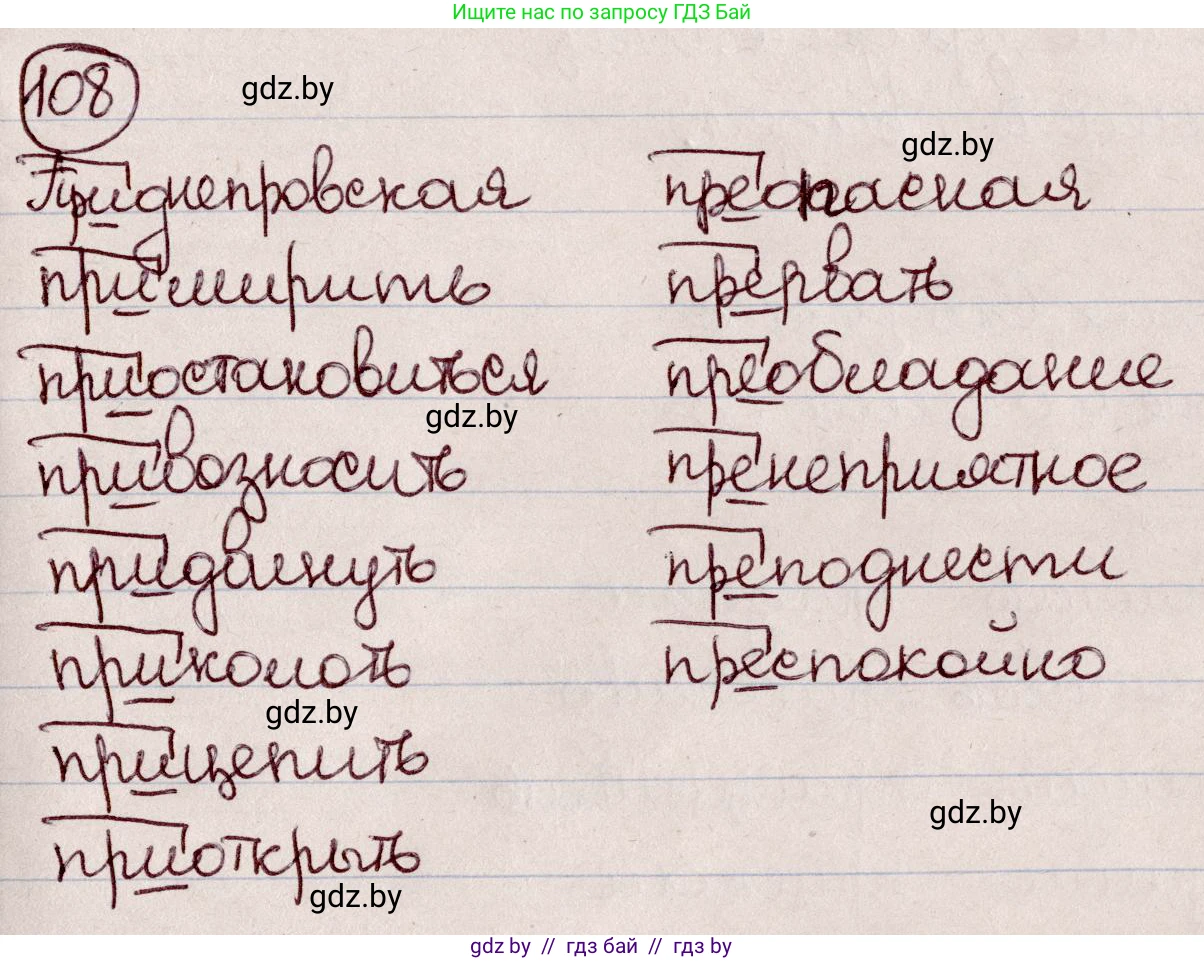 Ищите нас по запросу ГДЗ Бай
108
gdz.by
gdz.by
Приднепровская
преопасная
примирить
прервать
приостановиться
преобладание
gdz.by
привозносить
пренеприятное
придвинуть
преподнести
приколоть
преспокойно
gdz.by
прицепить
gdz.by
приоткрыть
gdz.by
gdz by // гдз бай // гдз by